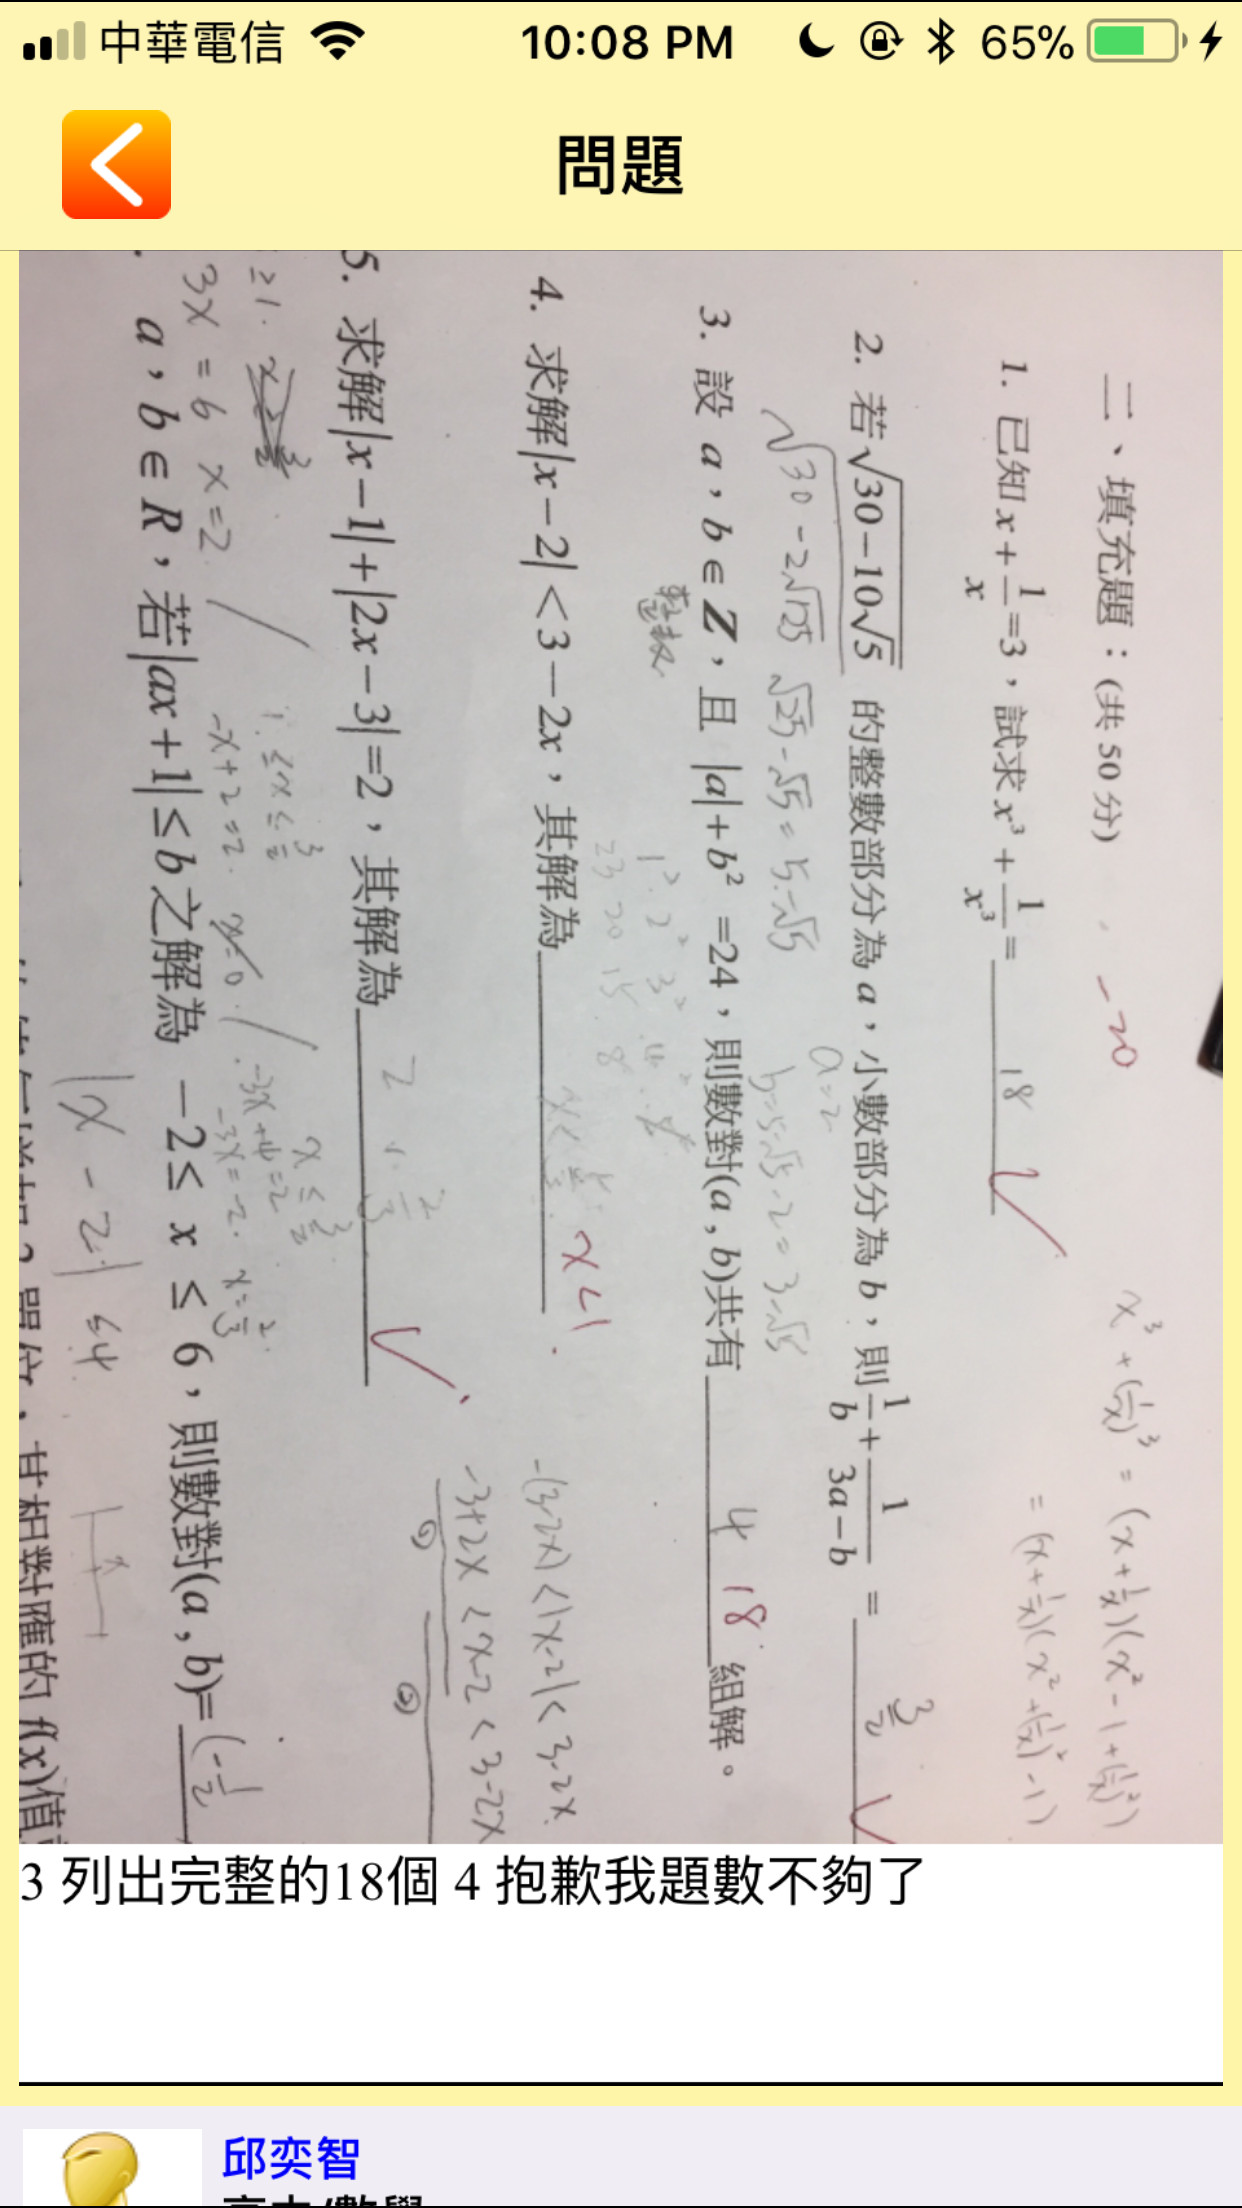 中華電信 10:08 PM 65%
問題
二、填充題：(共 50 分) -20
1. 已知 x+1/x=3，試求 x³+1/x³= 18
x³+(1/x)³ = (x+1/x)(x²-1+(1/x)²)
= (x+1/x)(x²+(1/x)²-1)
2. 若√(30-10√5) 的整數部分為 a，小數部分為 b，則 1/b + 1/(3a-b) = 3/2
√30-2√125 √25-√5 = 5-√5
a=2
b=5-√5-2=3-√5
3. 設 a，b∈Z，且 |a|+b²=24，則數對(a , b)共有 4 18 組解。
整數
1² 2² 3² 4²
23 20 15 8
4. 求解|x-2|<3-2x，其解為 x<1
-(3-2x)<|x-2|<3-2x
-3+2x<x-2<3-2x
① ②
5. 求解|x-1|+|2x-3|=2，其解為 2 2/3
≥1.
3x=6 x=2
1≤x≤3/2
-x+2=2. x=0
x≤3/2
-3x+4=2
-3x=-2. x=2/3
a，b∈R，若|ax+1|≤b之解為 -2≤ x ≤ 6，則數對(a , b)= (-1/2
|x-2|≤4
單位，其相對應的 f(x)值
3 列出完整的18個 4 抱歉我題數不夠了
邱奕智